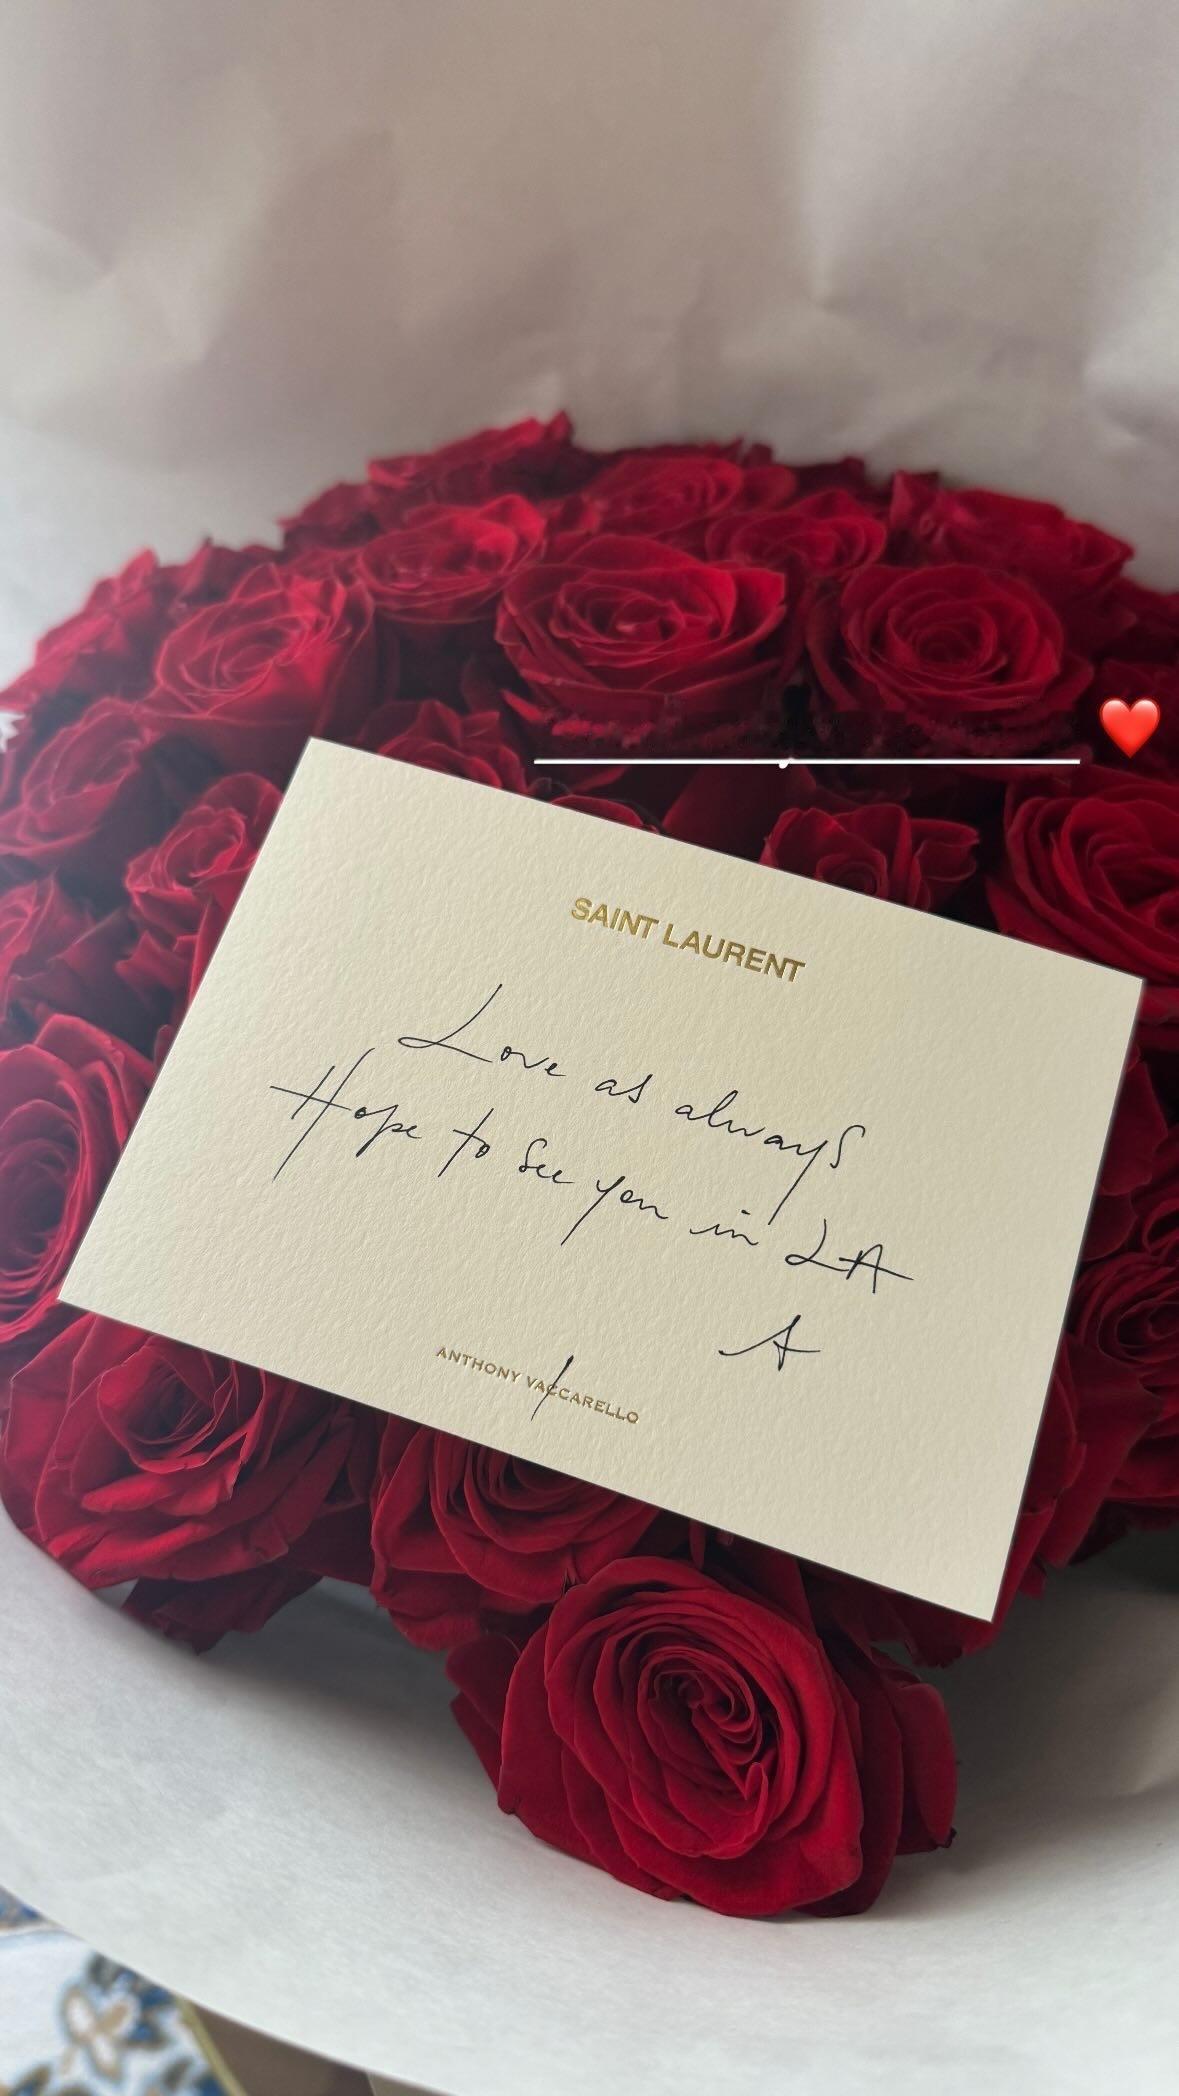 SAINT LAURENT
Love as always
Hope to see you in LA
A
ANTHONY VACCARELLO